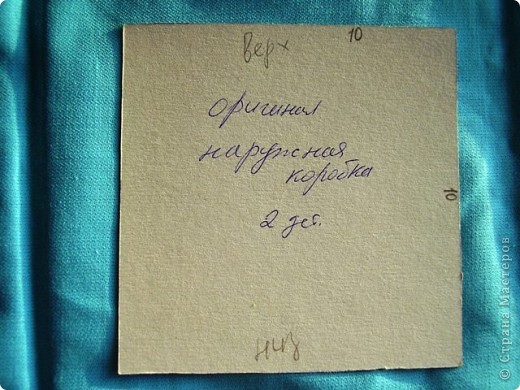 Верх 10
оригинал
наружная
коробка
10
2 дет.
низ
© Страна Мастеров